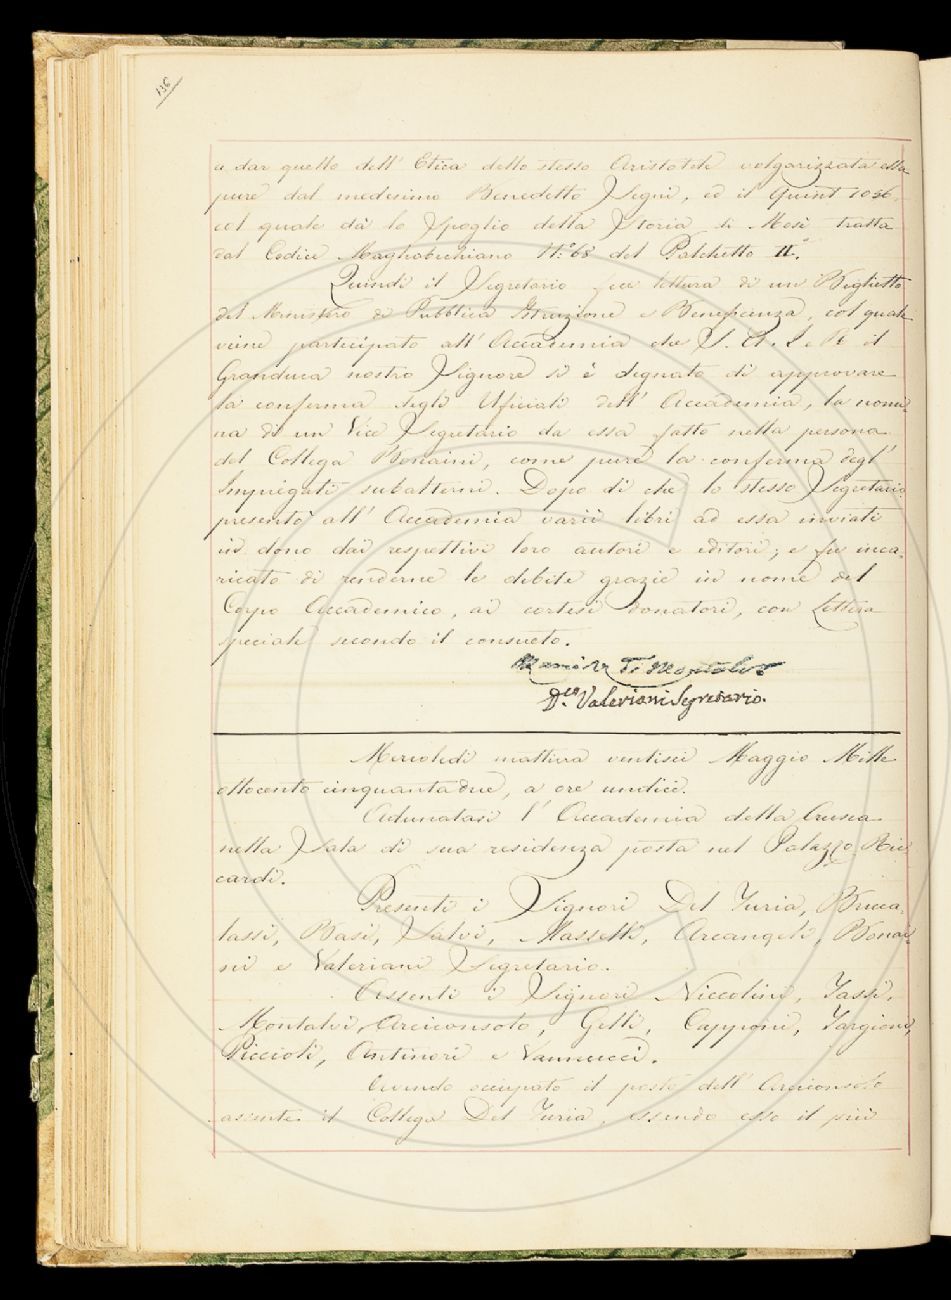 136
a dar quello dell' Etica dello stesso Aristotele volgarizzata essa
pure dal medesimo Benedetto Segni, ed il Quint 1056.
col quale dà lo Spoglio della Storia di Mosè tratta
dal Codice Magliabechiano N.° 68 del Palchetto II.°
Quindi il Segretario fece lettura di un Biglietto
del Ministero di Pubblica Istruzione e Beneficenza, col quale
viene partecipato all' Accademia che S. A. I. e R. il
Granduca nostro Signore si è degnato di approvare
la conferma degli Uficiali dell' Accademia, la nomi-
na di un Vice Segretario da essa fatto nella persona
del Collega Bonaini, come pure la conferma degl'
Impiegati subalterni. Dopo di che lo stesso Segretario
presentò all' Accademia varii libri ad essa inviati
in dono dai respettivi loro autori e editori; e fu inca-
ricato di renderne le debite grazie in nome del
Corpo Accademico, ai cortesi donatori, con Lettera
speciale secondo il consueto.
D.co Valeriani Segretario.
Mercoledì mattina ventisei Maggio Mille
ottocento cinquantadue, a ore undici.
Adunatasi l' Accademia della Crusca
nella Sala di sua residenza posta nel Palazzo Ric-
cardi.
Presenti i Signori Del Furia, Brucca-
lassi, Basi, Salvi, Masselli, Arcangeli, Bonai-
ni e Valeriani Segretario.
Assenti i Signori Niccolini, Tassi,
Montalvi Arciconsolo, Gelli, Capponi, Targioni,
Piccioli, Antinori e Vannucci.
Avendo occupato il posto dell' Arciconsolo
assente il Collega Del Furia, essendo esso il più